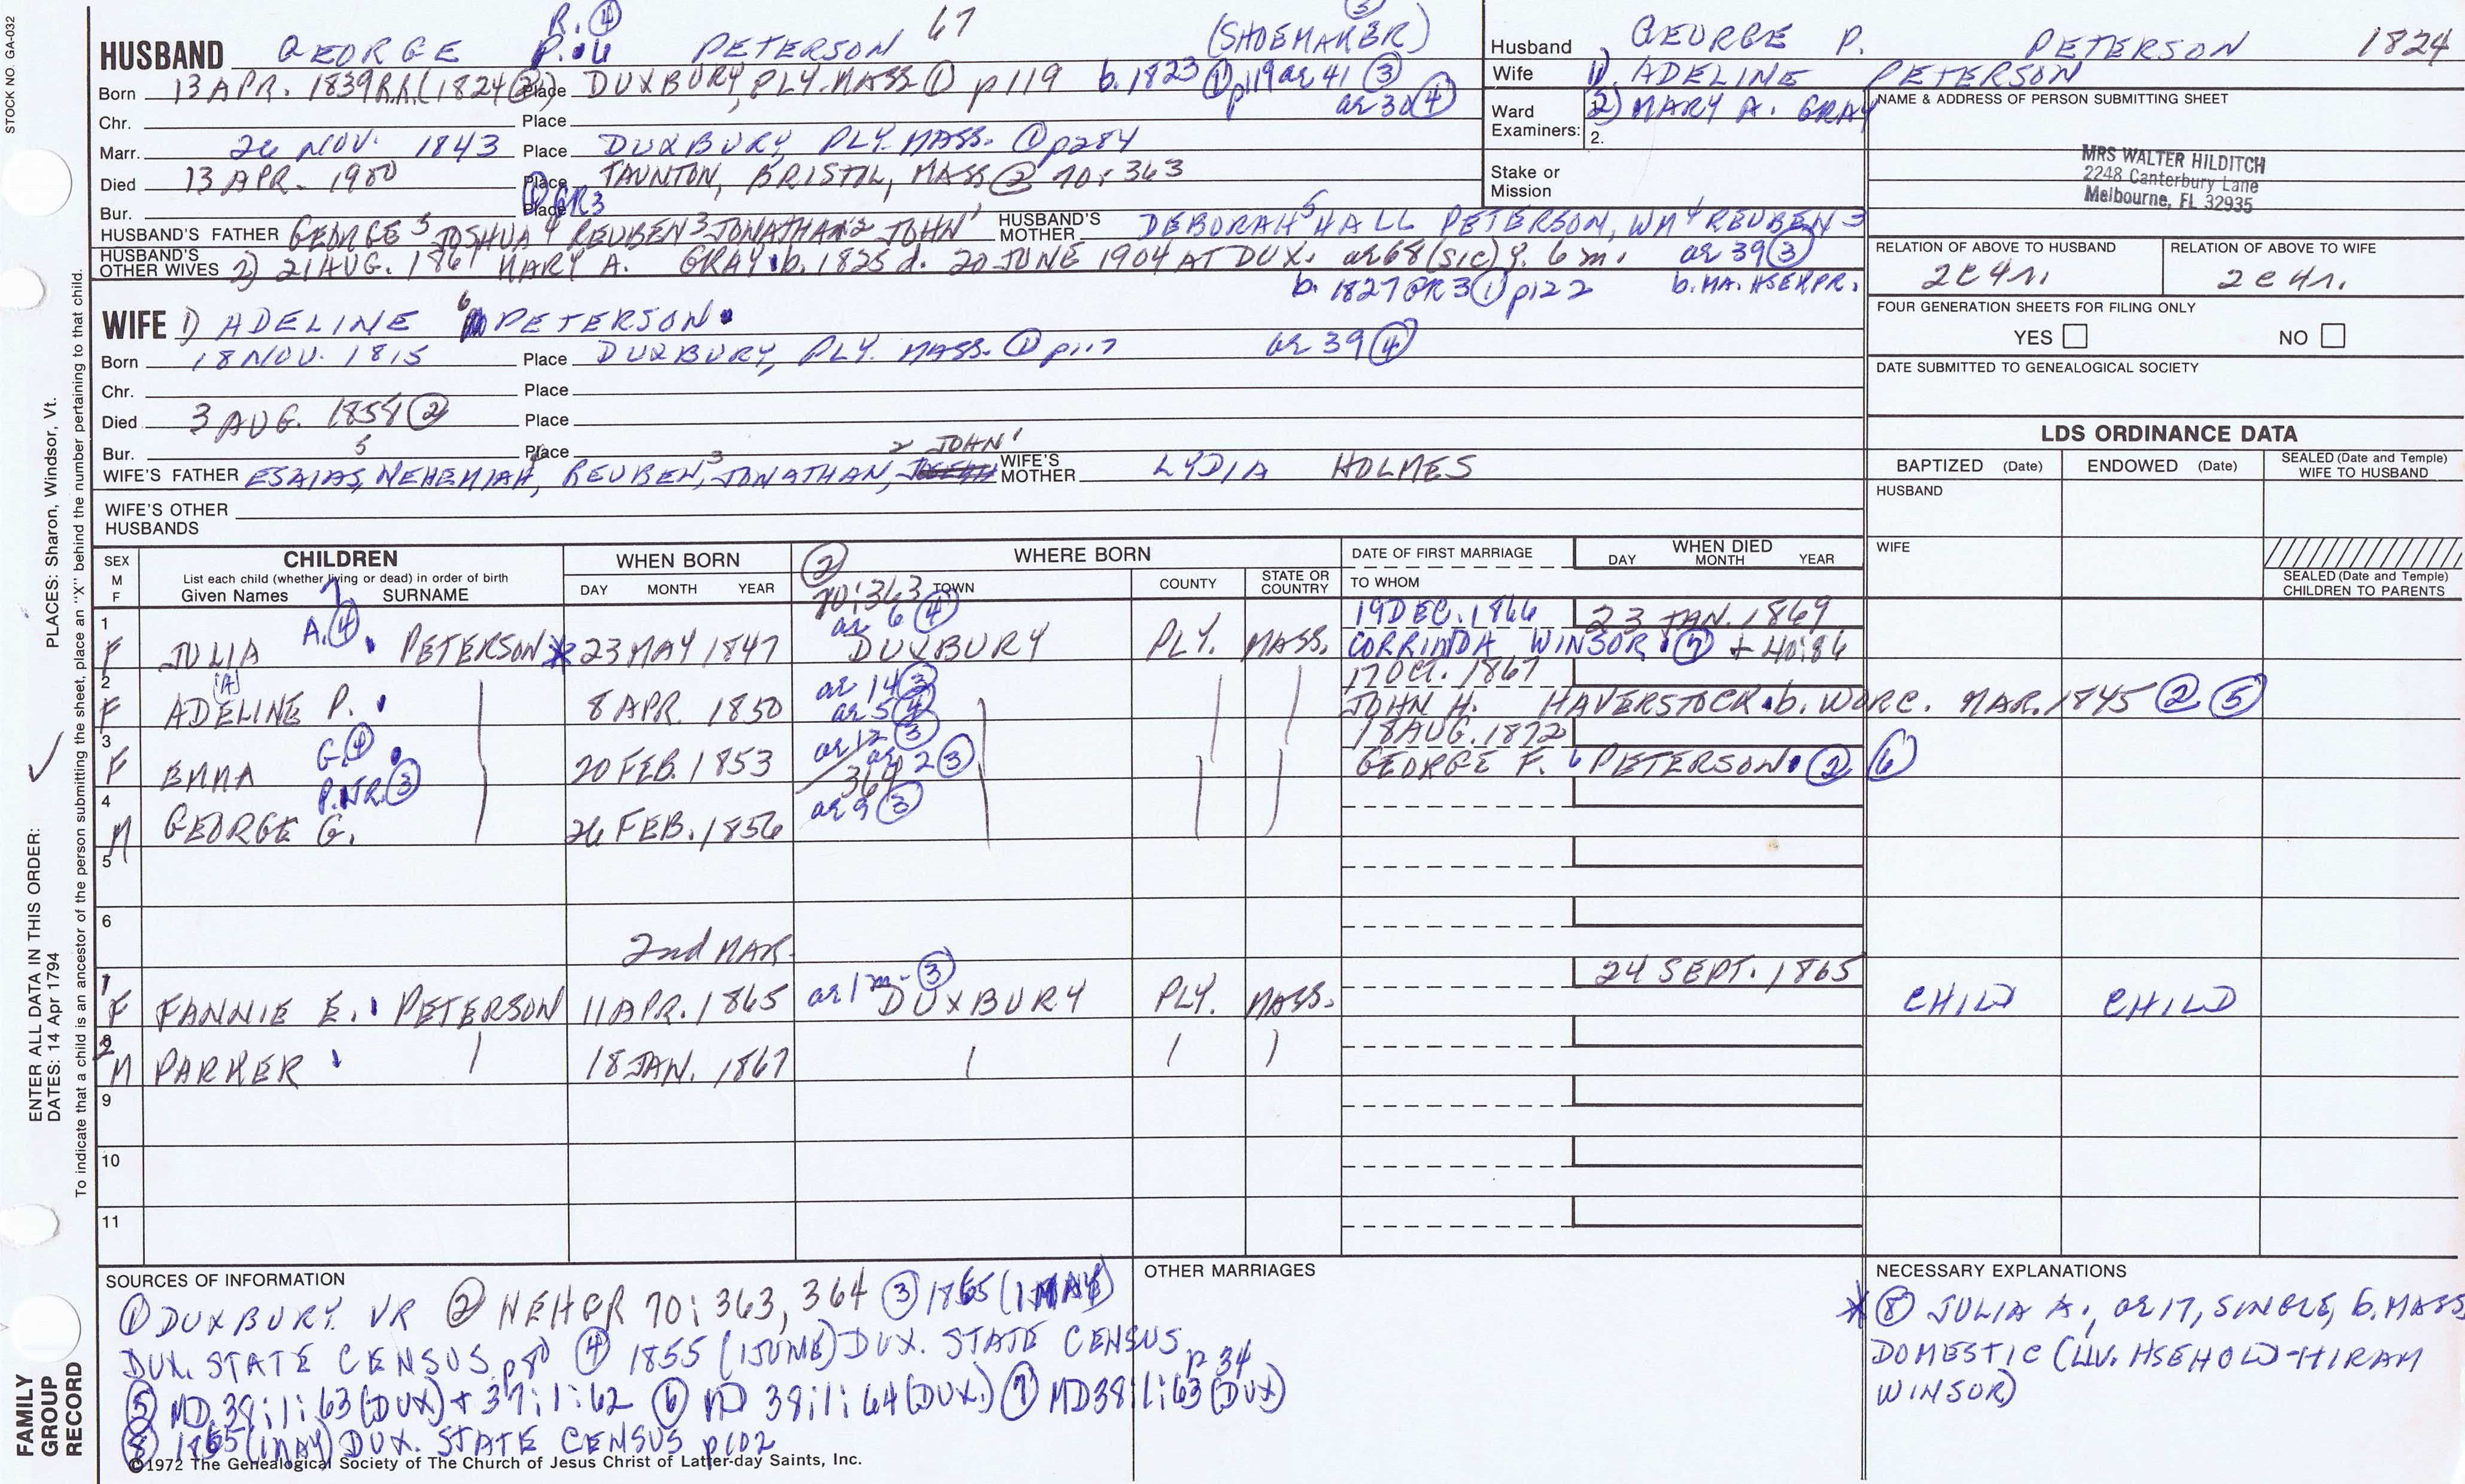 STOCK NO. GA-032
R. ④
67
HUSBAND GEORGE P. PETERSON (SHOEMAKER) ③
Born 13 APR. 1839 (1824 ②) Place DUXBURY, PLY. MASS ① p119 b. 1823 ① p119 ae 41 ③
Chr. Place
Marr. 26 NOV. 1843 Place DUXBURY, PLY. MASS. ① p284
Died 13 APR. 1900 Place TAUNTON, BRISTOL, MASS ② 70:363
Bur. Place ① GR3
HUSBAND'S FATHER GEORGE 5 JOSHUA 4 REUBEN 3 JONATHAN 2 JOHN 1 HUSBAND'S MOTHER DEBORAH 5 HALL PETERSON, WM 4 REUBEN 3
HUSBAND'S OTHER WIVES 2) 21 AUG. 1861 MARY A. GRAY b. 1825 d. 20 JUNE 1904 AT DUX. ae 68 (sic) y. 6 m. ae 39 ③
b. 1827 GR 3 ① p122 b. MA. HSEKPR.
WIFE 1) ADELINE 6 PETERSON
Born 18 NOV. 1815 Place DUXBURY, PLY. MASS. ① p117 ae 39 ④
Chr. Place
Died 3 AUG. 1858 ② Place
Bur. Place
2 JOHN 1
WIFE'S FATHER ESAIAS, 5 NEHEMIAH, REUBEN, 3 JONATHAN, WIFE'S MOTHER LYDIA HOLMES
WIFE'S OTHER HUSBANDS
Husband GEORGE P. PETERSON 1824
Wife 1). ADELINE PETERSON
Ward Examiners: 2) MARY A. GRAY
2.
Stake or Mission
NAME & ADDRESS OF PERSON SUBMITTING SHEET
MRS WALTER HILDITCH
2248 Canterbury Lane
Melbourne, FL 32935
RELATION OF ABOVE TO HUSBAND RELATION OF ABOVE TO WIFE
2c4r. 2c4r.
FOUR GENERATION SHEETS FOR FILING ONLY
YES NO
DATE SUBMITTED TO GENEALOGICAL SOCIETY
LDS ORDINANCE DATA
BAPTIZED (Date) ENDOWED (Date) SEALED (Date and Temple) WIFE TO HUSBAND
HUSBAND
WIFE
SEALED (Date and Temple) CHILDREN TO PARENTS
SEX M F CHILDREN WHEN BORN WHERE BORN DATE OF FIRST MARRIAGE WHEN DIED
List each child (whether living or dead) in order of birth
Given Names SURNAME DAY MONTH YEAR TOWN COUNTY STATE OR COUNTRY TO WHOM DAY MONTH YEAR
② 70:363
1 ae 6 ④ 19 DEC. 1866 23 JAN. 1869
F JULIA A. ④ PETERSON * 23 MAY 1847 DUXBURY PLY. MASS. CORRINDA WINSOR ⑦ + 40:86
2 (A) ae 14 ③ 17 OCT. 1867
F ADELINE P. 8 APR. 1850 ae 5 ④ JOHN H. HAVERSTOCK b. WORC. MAR. 1845 ② ⑤
3 ae 12 ③ 18 AUG. 1872
F EMMA G. ④ 20 FEB. 1853 ae 2 ③ GEORGE F. 6 PETERSON ② ⑥
4 P. JR. ③ 364
M GEORGE G. 26 FEB. 1856 ae 9 ③
5
6
2nd MAR.
1 ae 1 m- ③ 24 SEPT. 1865
F FANNIE E. PETERSON 11 APR. 1865 DUXBURY PLY. MASS. CHILD CHILD
2
M PARKER 18 JAN. 1867
9
10
11
SOURCES OF INFORMATION
① DUXBURY VR ② NEHGR 70:363, 364 ③ 1865 (1 MAY)
DUX. STATE CENSUS p80 ④ 1855 (1 JUNE) DUX. STATE CENSUS p 34
⑤ MD 38:1:63 (DUX) + 37:1:62 ⑥ MD 38:1:64 (DUX.) ⑦ MD 38:1:63 (DUX)
⑧ 1865 (1 MAY) DUX. STATE CENSUS p102
OTHER MARRIAGES
NECESSARY EXPLANATIONS
* ⑧ JULIA A., ae 17, SINGLE, b. MASS
DOMESTIC (LIV. HSEHOLD-HIRAM
WINSOR)
©1972 The Genealogical Society of The Church of Jesus Christ of Latter-day Saints, Inc.
FAMILY GROUP RECORD
ENTER ALL DATA IN THIS ORDER:
DATES: 14 Apr 1794
PLACES: Sharon, Windsor, Vt.
To indicate that a child is an ancestor of the person submitting the sheet, place an "X" behind the number pertaining to that child.